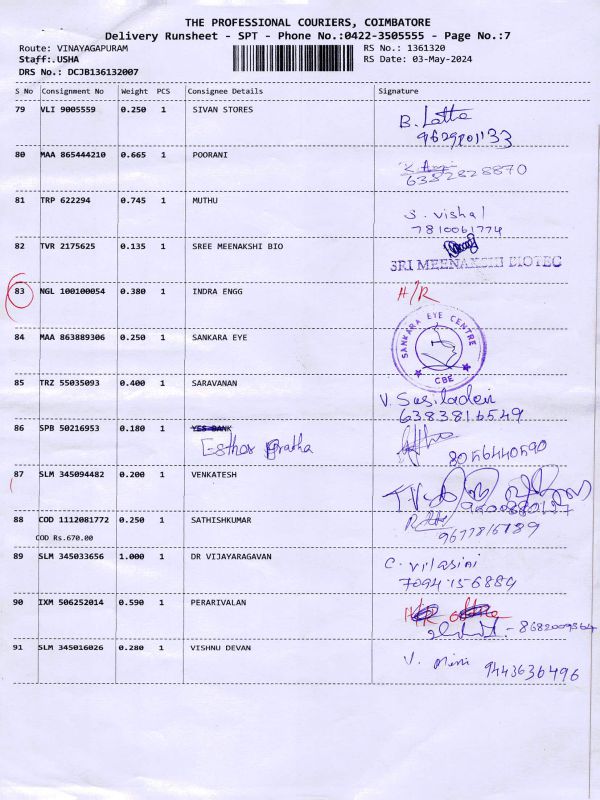 THE PROFESSIONAL COURIERS, COIMBATORE
Delivery Runsheet - SPT - Phone No.:0422-3505555 - Page No.:7
Route: VINAYAGAPURAM RS No.: 1361320
Staff:.USHA RS Date: 03-May-2024
DRS No.: DCJB136132007
S No Consignment No Weight PCS Consignee Details Signature
79 VLI 9005559 0.250 1 SIVAN STORES B. Latha
80 MAA 865444210 0.665 1 POORANI
6382828870
81 TRP 622294 0.745 1 MUTHU S. vishal
7810061774
82 TVR 2175625 0.135 1 SREE MEENAKSHI BIO
SRI MEENAKSHI BIOTEC
83 NGL 100100054 0.380 1 INDRA ENGG H/R
84 MAA 863889306 0.250 1 SANKARA EYE SANKARA EYE CENTRE CBE
85 TRZ 55035093 0.400 1 SARAVANAN V. Sasiladevi
6383816549
86 SPB 50216953 0.180 1 YES BANK
Esther
8056440590
87 SLM 345094482 0.200 1 VENKATESH
88 COD 1112081772 0.250 1 SATHISHKUMAR
COD Rs.670.00
89 SLM 345033656 1.000 1 DR VIJAYARAGAVAN C. vilasini
7094156884
90 IXM 506252014 0.590 1 PERARIVALAN H/R
- 8682009364
91 SLM 345016026 0.280 1 VISHNU DEVAN V. mini 9443636496